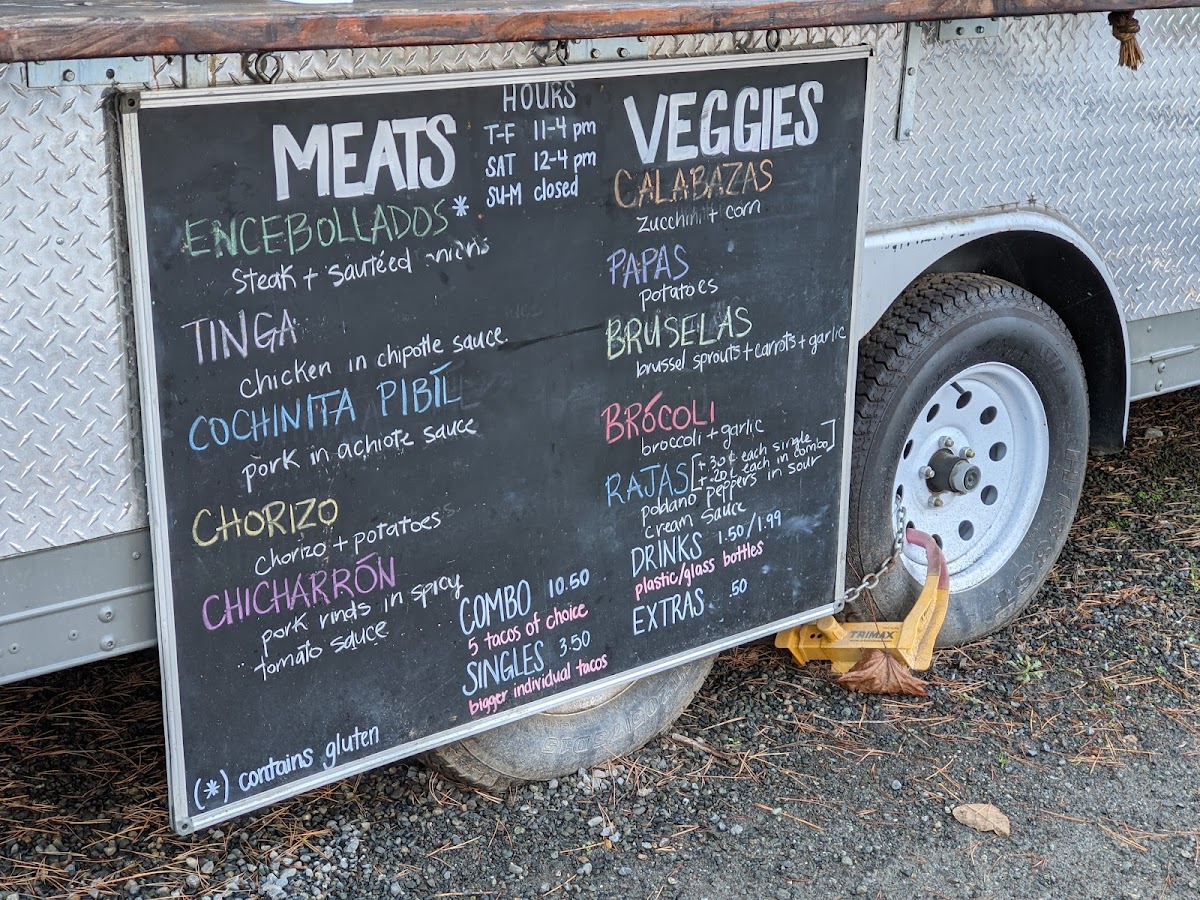 MEATS
ENCEBOLLADOS*
steak + sautéed onions
TINGA
chicken in chipotle sauce.
COCHINITA PIBÍL
pork in achiote sauce
CHORIZO
chorizo + potatoes
CHICHARRÓN
pork rinds in spicy
tomato sauce
(*) contains gluten
HOURS
T-F 11-4 pm
SAT 12-4 pm
SU-M closed
COMBO 10.50
5 tacos of choice
SINGLES 3.50
bigger individual tacos
VEGGIES
CALABAZAS
zucchini + corn
PAPAS
potatoes
BRUSELAS
brussel sprouts + carrots + garlic
BRÓCOLI
broccoli + garlic
RAJAS [+ 30¢ each single
+ 20¢ each in combo]
poblano peppers in sour
cream sauce
DRINKS 1.50/1.99
plastic/glass bottles
EXTRAS .50
TRIMAX